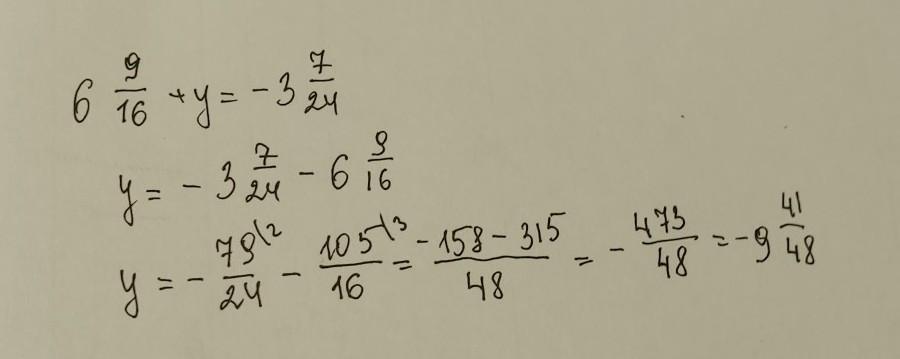 6 9/16 + y = -3 7/24
y = -3 7/24 - 6 9/16
y = - 79\2/24 - 105\3/16 = -158 - 315/48 = - 473/48 = -9 41/48